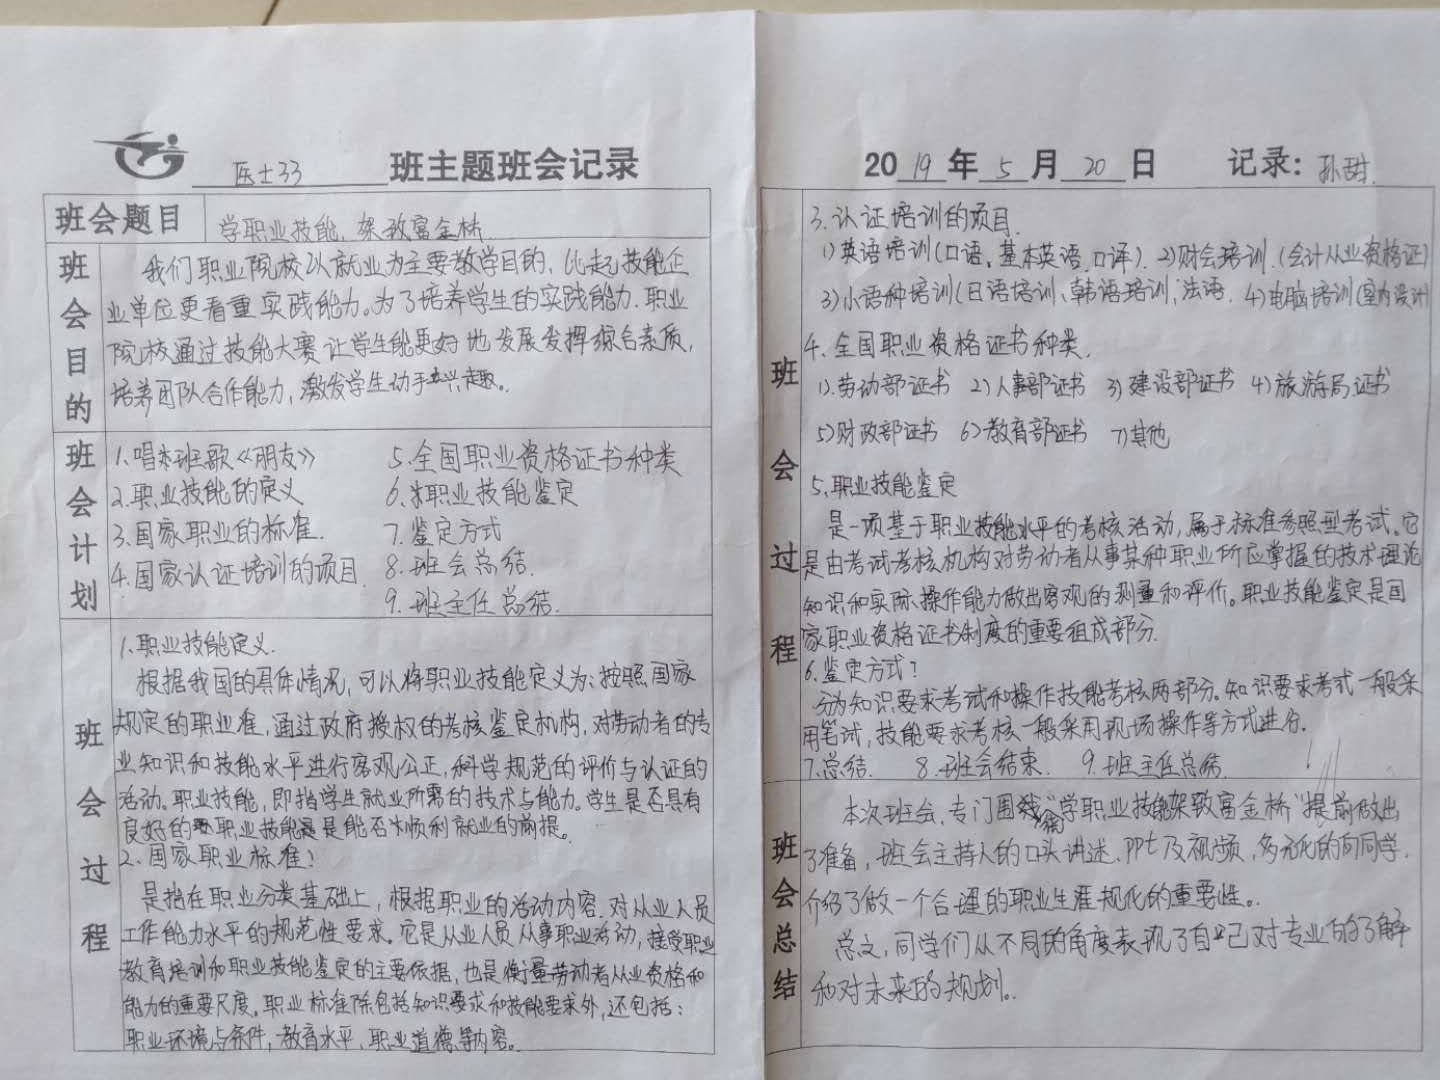 医士33 班主题班会记录
班会题目 学职业技能,架致富金桥
班会目的
我们职业院校以就业为主要教学目的,比起技能企
业单位更看重实践能力。为了培养学生的实践能力.职业
院校通过技能大赛让学生能更好地发展发挥综合素质,
培养团队合作能力,激发学生动手兴趣。
班会计划
1.唱本班歌《朋友》
2.职业技能的定义
3.国家职业的标准.
4.国家认证培训的项目.
5.全国职业资格证书种类
6.职业技能鉴定
7.鉴定方式
8.班会总结.
9.班主任总结.
班会过程
1.职业技能定义.
根据我国的具体情况,可以将职业技能定义为:按照国家
规定的职业准,通过政府授权的考核鉴定机构,对劳动者的专
业知识和技能水平进行客观公正,科学规范的评价与认证的
活动。职业技能,即指学生就业所需的技术与能力。学生是否具有
良好的职业技能是是能否顺利就业的前提。
2.国家职业标准:
是指在职业分类基础上,根据职业的活动内容.对从业人员
工作能力水平的规范性要求。它是从业人员从事职业活动,接受职业
教育培训和职业技能鉴定的主要依据,也是衡量劳动者从业资格和
能力的重要尺度。职业标准除包括知识要求和技能要求外,还包括:
职业环境与条件,教育水平,职业道德等内容。
2019年5月20日 记录:孙甜.
班会过程
3.认证培训的项目.
1)英语培训(口语,基本英语,口译). 2)财会培训.(会计从业资格证)
3)小语种培训(日语培训、韩语培训,法语. 4)电脑培训(室内设计)
4.全国职业资格证书种类.
1).劳动部证书 2)人事部证书 3)建设部证书 4)旅游局证书
5)财政部证书 6)教育部证书 7)其他
5.职业技能鉴定
是一项基于职业技能水平的考核活动,属于标准参照型考试。它
是由考试考核机构对劳动者从事某种职业所应掌握的技术理论
知识和实际操作能力做出客观的测量和评价。职业技能鉴定是国
家职业资格证书制度的重要组成部分.
6.鉴定方式?
分为知识要求考试和操作技能考核两部分.知识要求考试一般采
用笔试,技能要求考核一般采用现场操作等方式进行.
7.总结. 8.班会结束. 9.班主任总结.
班会总结
本次班会,专门围绕"学职业技能架致富金桥"提前做出
了准备,班会主持人的口头讲述.PPt及视频,多元化的向同学.
介绍了做一个合理的职业生涯规化的重要性。
总之,同学们从不同的角度表现了自己对专业的了解
和对未来的规划。